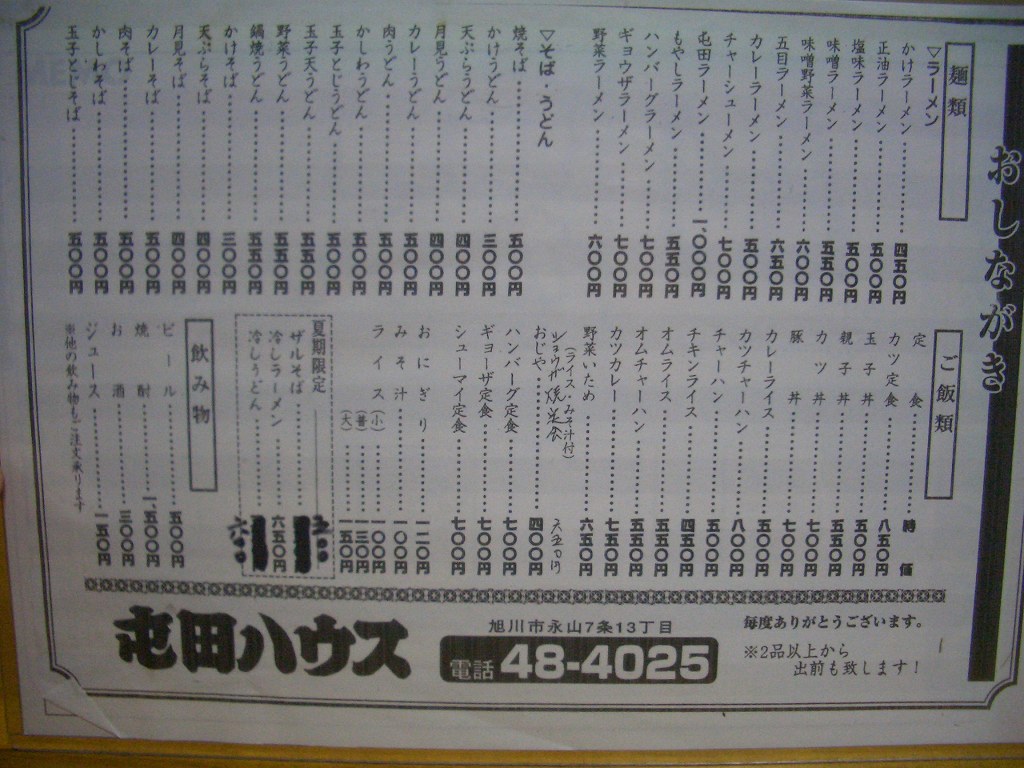 おしながき
麺類
▽ラーメン
かけラーメン………四五〇円
正油ラーメン………五〇〇円
塩味ラーメン………五〇〇円
味噌ラーメン………五五〇円
味噌野菜ラーメン………六〇〇円
五目ラーメン………六五〇円
カレーラーメン………五〇〇円
チャーシューメン………七〇〇円
屯田ラーメン………一、〇〇〇円
もやしラーメン………五五〇円
ハンバーグラーメン………七〇〇円
ギョウザラーメン………七〇〇円
野菜ラーメン………六〇〇円
▽そば・うどん
焼そば………五〇〇円
かけうどん………三〇〇円
天ぷらうどん………四〇〇円
月見うどん………四〇〇円
カレーうどん………五〇〇円
肉うどん………五〇〇円
かしわうどん………五〇〇円
玉子とじうどん………五〇〇円
玉子天うどん………五五〇円
野菜うどん………五五〇円
鍋焼うどん………五五〇円
かけそば………三〇〇円
天ぷらそば………四〇〇円
月見そば………四〇〇円
カレーそば………五〇〇円
肉そば………五〇〇円
かしわそば………五〇〇円
玉子とじそば………五〇〇円
ご飯類
定食………時価
カツ定食………八五〇円
玉子丼………五〇〇円
親子丼………五五〇円
カツ丼………七〇〇円
豚丼………七〇〇円
カレーライス………五〇〇円
カツチャーハン………八〇〇円
チャーハン………五〇〇円
チキンライス………四五〇円
オムライス………五五〇円
オムチャーハン………五五〇円
カツカレー………七五〇円
野菜いため………六五〇円
(ライス・みそ汁付)
ショウガ焼定食
おじや………四〇〇円
ハンバーグ定食………七〇〇円
ギョーザ定食………七〇〇円
シューマイ定食………七〇〇円
おにぎり………一二〇円
みそ汁………一〇〇円
ライス(小)………一〇〇円
(普)………一三〇円
(大)………一五〇円
夏期限定
ザルそば………
冷しラーメン………六五〇円
冷しうどん………六〇〇
飲み物
ビール………五〇〇円
焼酎………一、五〇〇円
お酒………三〇〇円
ジュース………一五〇円
※他の飲み物もご注文承ります
毎度ありがとうございます。
※2品以上から
出前も致します!
旭川市永山7条13丁目
電話48-4025
屯田ハウス